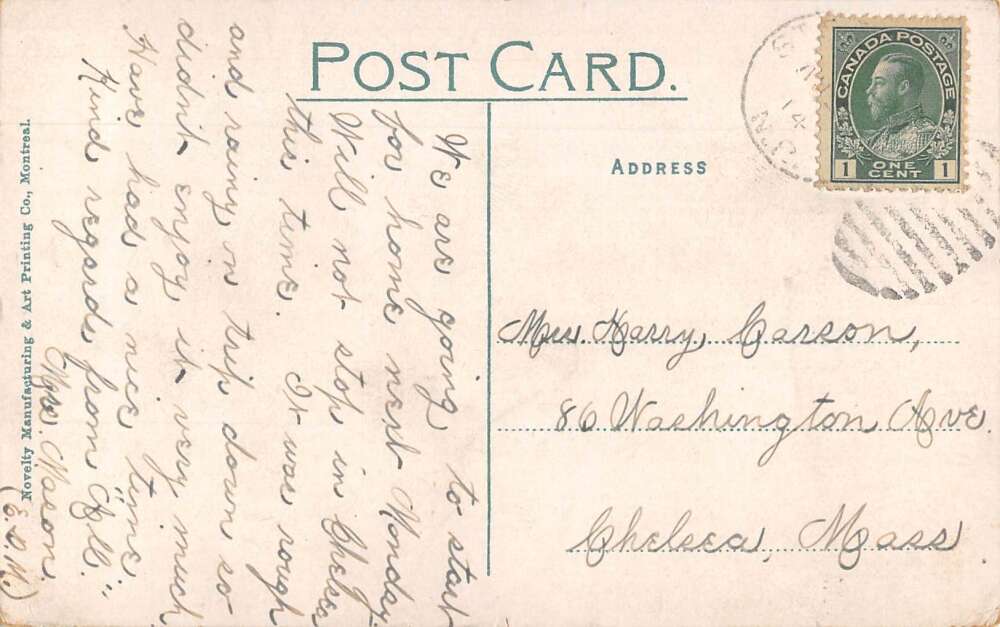 POST CARD.
CANADA POSTAGE
1 ONE CENT 1
14
ADDRESS
Mrs. Harry, Carson,
86 Washington Ave
Chelsea, Mass
We are going to start
for home next Monday.
Will not stop in Chelsea
this time. It was rough
and rainy on trip down so
didn't enjoy it very much
Have had a nice time
Kind regards from "All."
Mrs. Nason
(E.O.N.)
Novelty Manufacturing & Art Printing Co., Montreal.